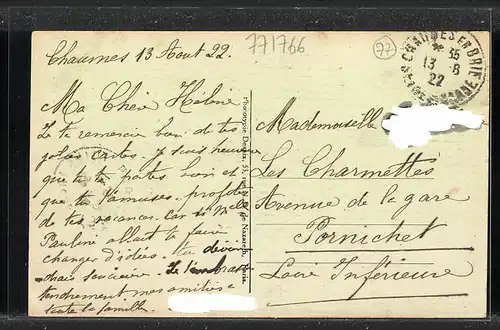 Chaumes 13 Aout 22.
771766
77
CHAUMES EN BRIE
* 35
13 - 8
22
SEINE ET MARNE
Ma Chère Hélène
Je te remercie bien de tes
jolies cartes. je suis heureuse
que tu te portes bien et
que tu t'amuses. profites
de tes vacances. Car si Melle
Pauline allait te faire
changer d'idées. tu
mais Je t'embrasse
tendrement mes amitiés a
toute la famille.
Phototypie
de Nazareth, Paris
Mademoiselle
Les Charmettes
Avenue de la gare
Pornichet
Loire Inférieure